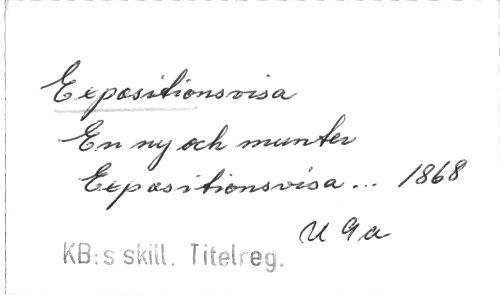 Expositionsvisa
En ny och munter
Expositionsvisa... 1868
U 9 a
KB:s skill. Titelreg.